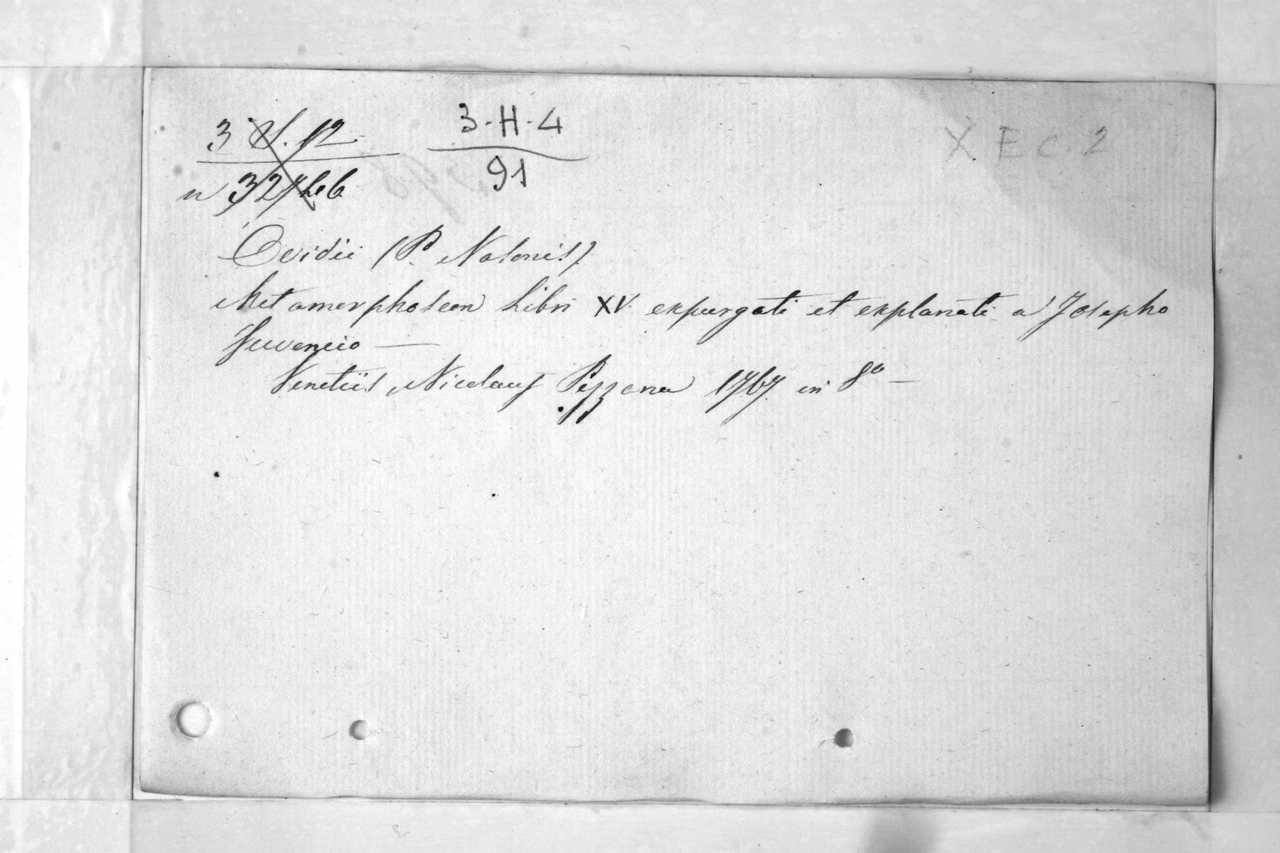 3-H-4
91
X. E C. 2
Ovidii (P. Nasonis)
Metamorphoseon Libri XV. expurgati et explanati a Josepho
Juvencio —
Venetiis, Nicolaus Pezzana 1767 in 8º —